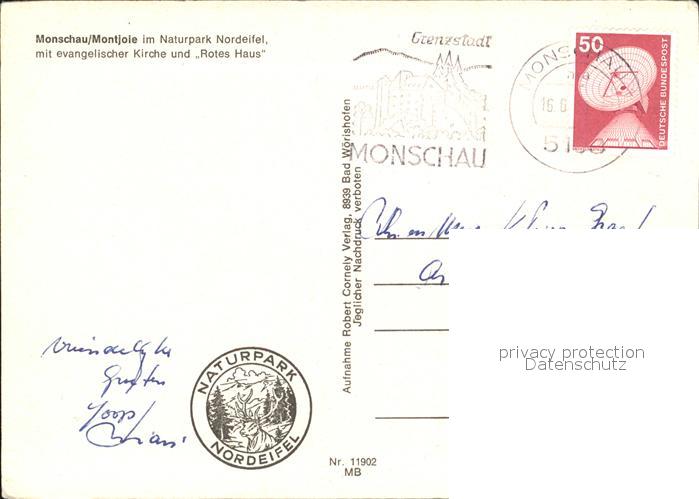 Monschau/Montjoie im Naturpark Nordeifel,
mit evangelischer Kirche und „Rotes Haus"
Grenzstadt
MONSCHAU
MONSCHAU
16.6
51
50
DEUTSCHE BUNDESPOST
Aufnahme Robert Cornely Verlag, 8939 Bad Wörishofen
Jeglicher Nachdruck verboten
privacy protection
Datenschutz
Joop/
NATURPARK
NORDEIFEL
Nr. 11902
MB